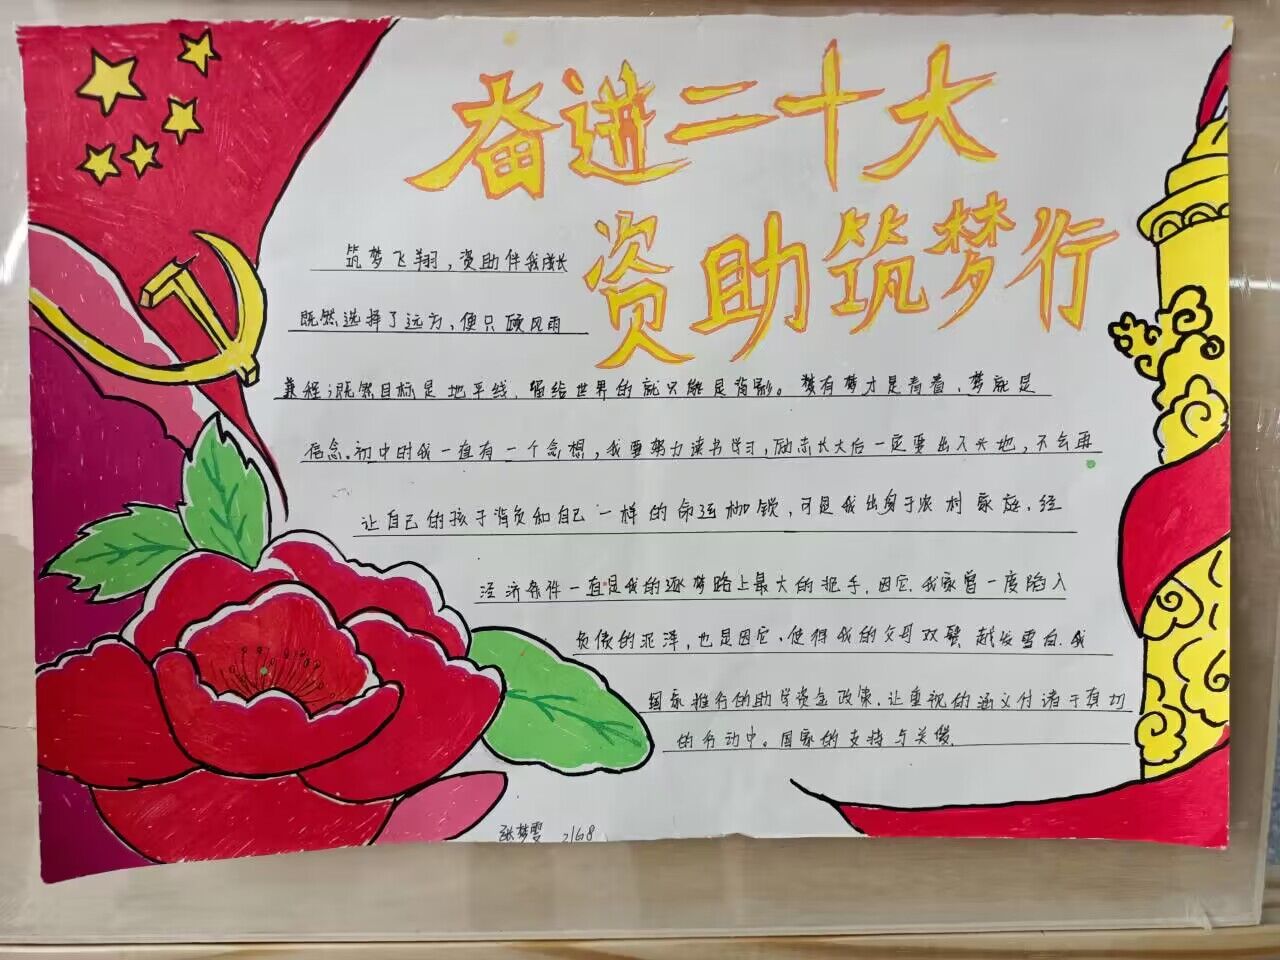 奋进二十大
资助筑梦行
筑梦飞翔，资助伴我成长
既然选择了远方，便只顾风雨
兼程；既然目标是地平线，留给世界的就只能是背影。梦有梦才是青春，梦就是
信念。初中时我一直有一个念想，我要努力读书学习，励志长大后一定要出人头地，不会再
让自己的孩子背负和自己一样的命运枷锁，可是我出身于农村家庭，经
泾济条件一直是我的逐梦路上最大的把手，因它，我家曾一度陷入
负债的泥泽，也是因它，使得我的父母双鬓越发雪白。我
国家推行的助学资金政策，让重视的涵义付诸于真切
的行动中。国家的支持与关
张梦雯 2168